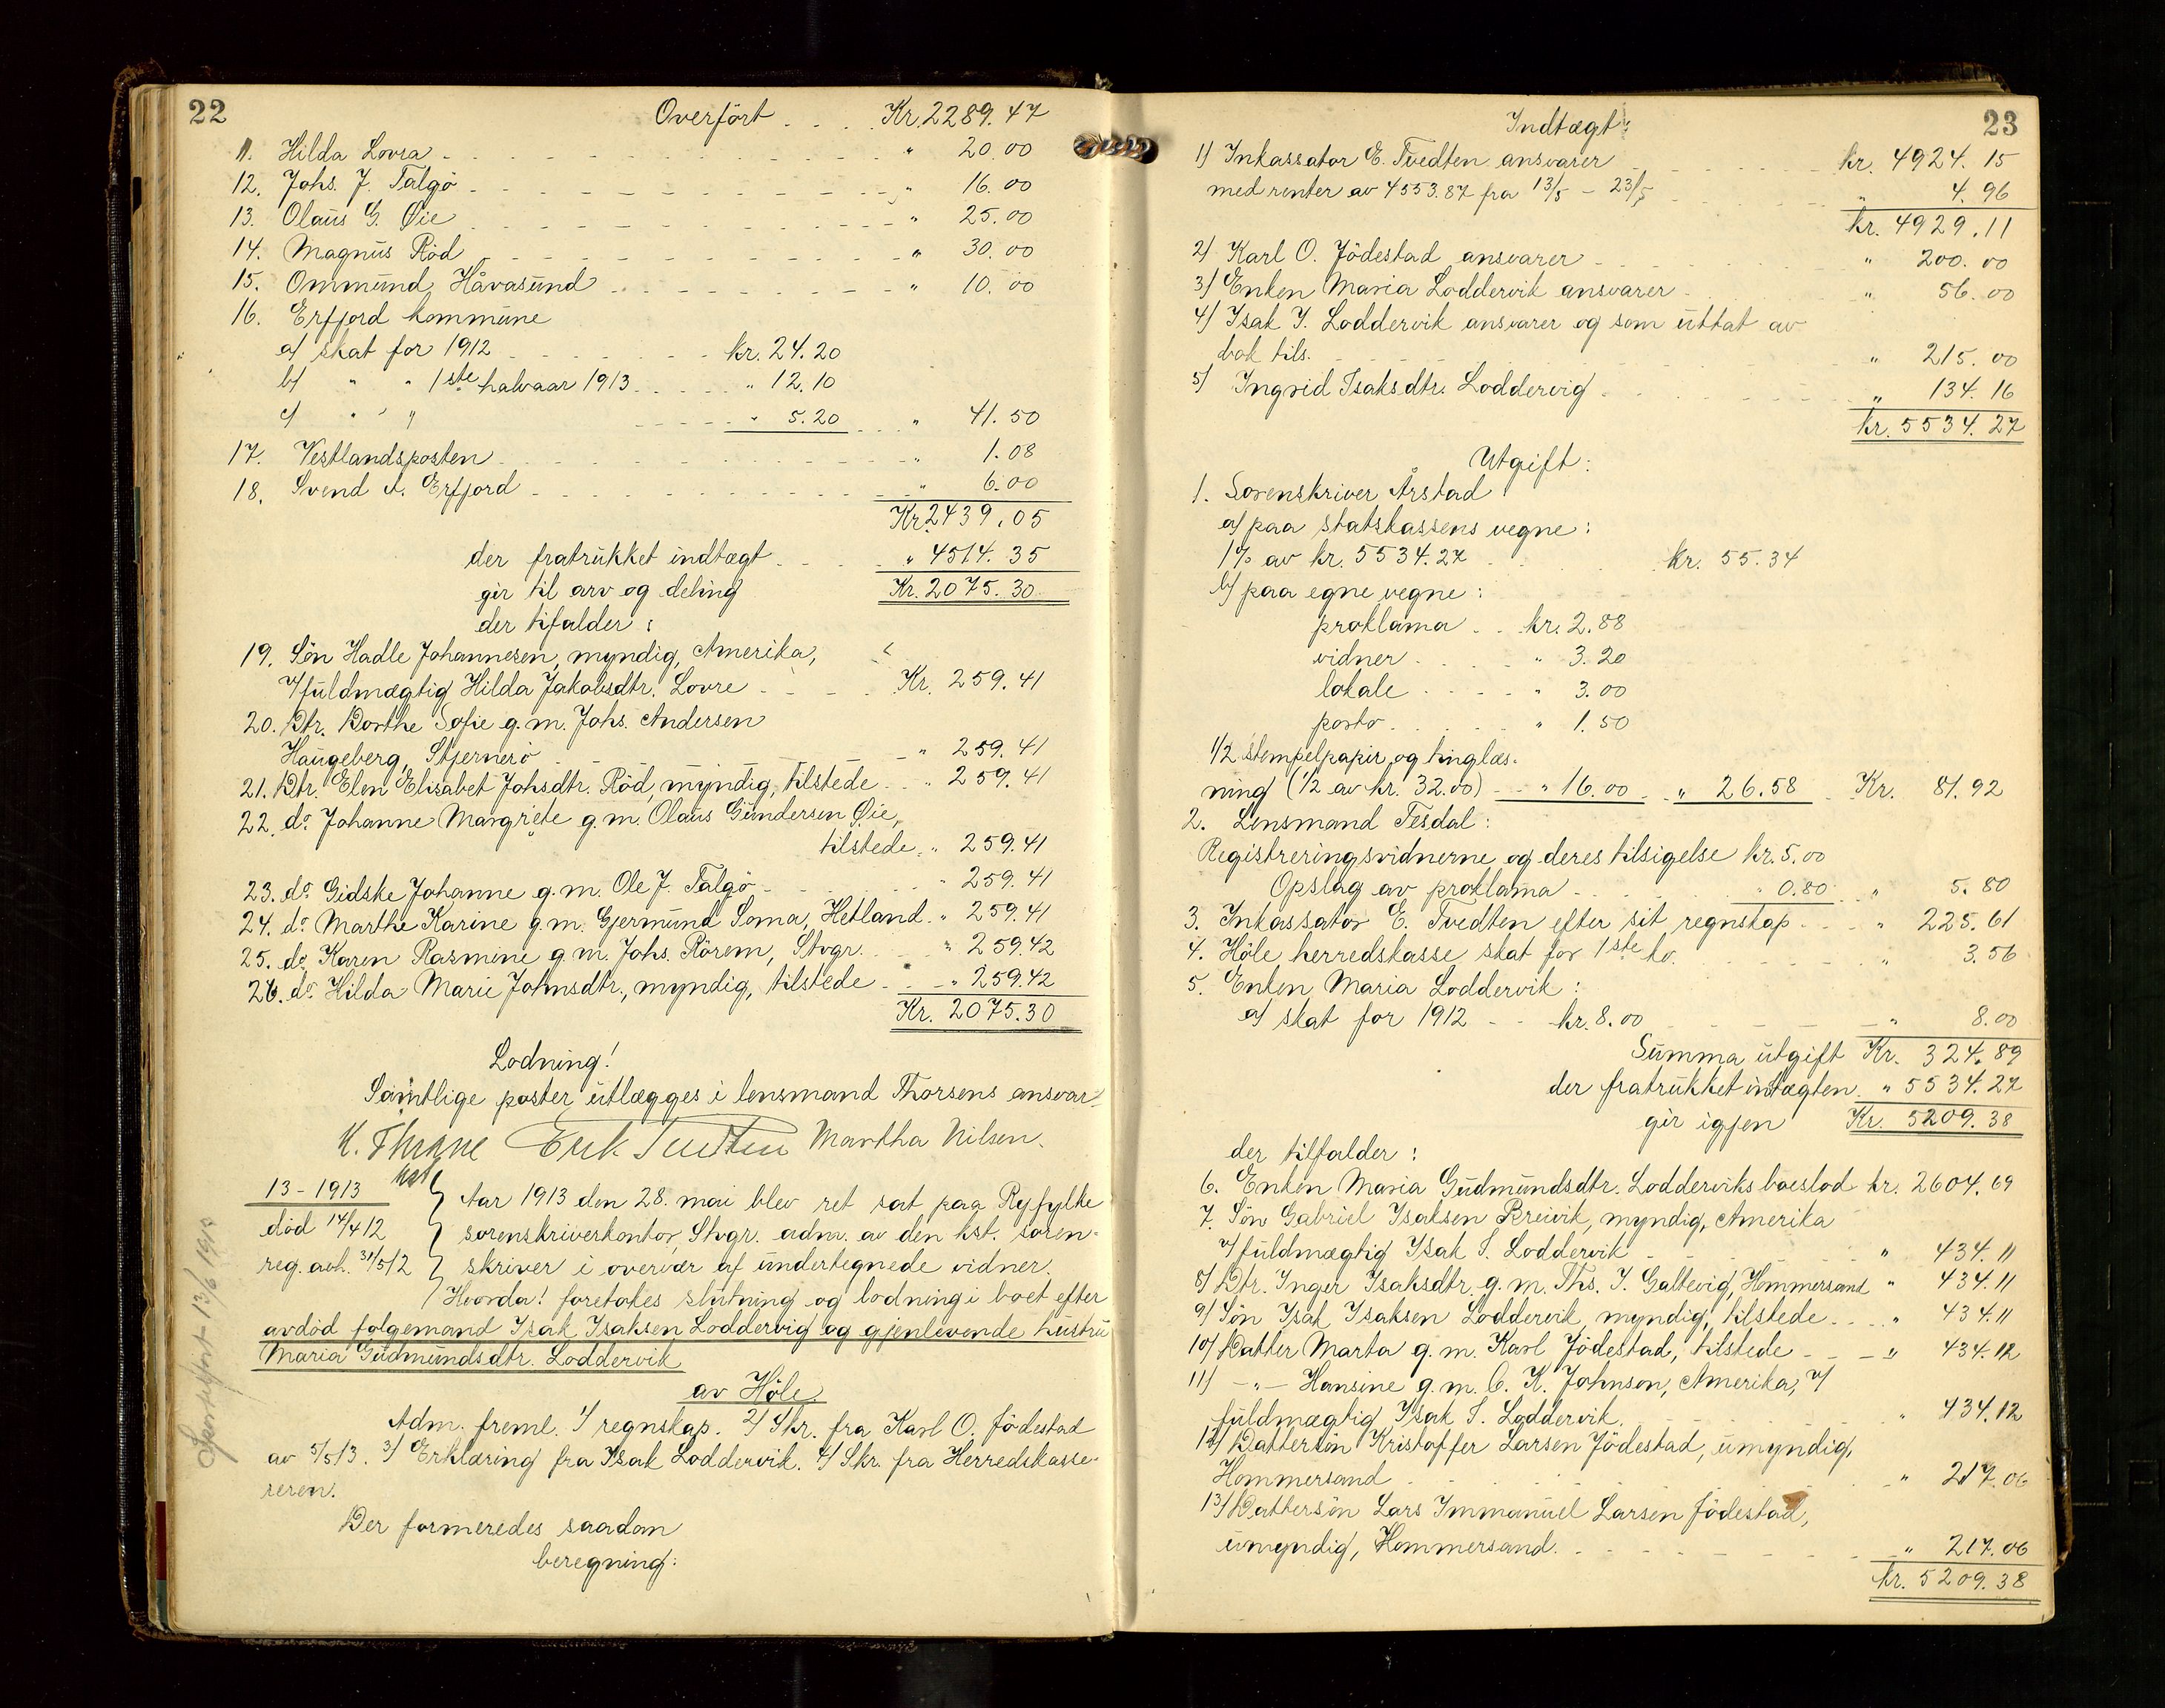 22
Overført . . . . Kr. 2289.47
11. Hilda Lovra - - - " 20.00
12. Johs. J. Talgö - - - " 16.00
13. Olaus G. Øie - - - " 25.00
14. Magnus Röd - - - " 30.00
15. Ommund Håvasund - - - " 10.00
16. Erfjord kommune
a) skat for 1912 - - - kr. 24.20
b) " " 1ste halvaar 1913 . . . " 12.10
c) " " " - - - " 5.20 . . . " 41.50
17. Vestlandsposten - - - " 1.08
18. Svend A. Erfjord - - - " 6.00
Kr. 2439.05
der fratrukket indtægt . . . . " 4514.35
gir til arv og deling Kr. 2075.30
der tilfalder:
19. Sön Hadle Johannesen, myndig, Amerika,
v/fuldmægtig Hilda Jakobsdtr. Lovre - - - Kr. 259.41
20. Dtr. Borthe Sofie g.m. Johs. Andersen
Haugeberg, Stjernerö - - - " 259.41
21. Dtr. Elen Elisabet Johsdtr. Röd, myndig, tilstede . . " 259.41
22. do. Johanne Margrete g.m. Olaus Gundersen Øie,
tilstede . " 259.41
23. do. Gidske Johanne g.m. Ole J. Talgö - - - " 259.41
24. do. Marthe Karine g.m. Gjermund Soma, Hetland . " 259.41
25. do. Karen Rasmine g.m. Johs. Rörem, Stvgr. . . " 259.42
26. do. Hilda Marie Johnsdtr., myndig, tilstede - - " 259.42
Kr. 2075.30
Lodning!
Samtlige poster utlægges i lensmand Thorsens ansvar.
K. Thrane Erik Tvedten Martha Nilsen.
13 - 1913
död 14/4 12
reg. avh. 31/5 12
Aar 1913 den 28. mai blev ret sat paa Ryfylke
sorenskriverkontor, Stvgr. adm. av den kst. soren-
skriver i overvær af undertegnede vidner.
Hvorda! foretokes slutning og lodning i boet efter
avdöd folgemand Isak Isaksen Loddervig og gjenlevende hustru
Maria Gudmundsdtr. Loddervik
av Höle.
Adm. freml. 1/ regnskap. 2/ Skr. fra Karl O. Jödestad
av 5/5 13. 3/ Erklæring fra Isak Loddervik. 4/ Skr. fra Herredskasse-
reren.
Der formeredes saadan
beregning:
13/6 1913
23
Indtægt:
1) Inkassator E. Tvedten ansvarer - - - kr. 4924.15
med renter av 4553.87 fra 13/5 - 23/5 - - - " 4.96
kr. 4929.11
2) Karl O. Jödestad ansvarer - - - " 200.00
3) Enken Maria Loddervik ansvarer - - - " 56.00
4) Isak I. Loddervik ansvarer og som uttat av
bok tils. - - - " 215.00
5) Ingrid Isaksdtr. Loddervig - - - " 134.16
kr. 5534.27
Utgift:
1. Sorenskriver Årstad
a) paa statskassens vegne:
1% av kr. 5534.27 . . . kr. 55.34
b) paa egne vegne:
proklama . . kr. 2.88
vidner . . . " 3.20
lokale . . . " 3.00
porto . . . " 1.50
1/2 stempelpapir og tinglæs-
ning (1/2 av kr. 32.00) - - " 16.00 . . " 26.58 . Kr. 81.92
2. Lensmand Tesdal:
Registreringsvidnerne og deres tilsigelse kr. 5.00
Opslag av proklama - - - " 0.80 . . " 5.80
3. Inkassator E. Tvedten efter sit regnskap . . . " 225.61
4. Höle herredskasse skat for 1ste hv. - - - " 3.56
5. Enken Maria Loddervik:
a) skat for 1912 - - kr. 8.00 - - - " 8.00
Summa utgift Kr. 324.89
der fratrukket indtægten . " 5534.27
gir igjen Kr. 5209.38
der tilfalder:
6. Enken Maria Gudmundsdtr. Lodderviks boeslod kr. 2604.69
7. Sön Gabriel Isaksen Breivik, myndig, Amerika
v/fuldmægtig Isak I. Loddervik - - - " 434.11
8) Dtr. Inger Isaksdtr. g.m. Ths. I. Galtevig, Hommersand " 434.11
9) Sön Isak Isaksen Loddervik, myndig, tilstede . . . " 434.11
10) Datter Marta g.m. Karl Jödestad, tilstede - - - " 434.12
11) - " - Hansine g.m. C. K. Johnson, Amerika, v/
fuldmægtig Isak I. Loddervik. - - - " 434.12
12) Dattersön Kristoffer Larsen Jödestad, umyndig,
Hommersand - - - " 217.06
13) Dattersön Lars Immanuel Larsen Jödestad,
umyndig, Hommersand. - - - " 217.06
kr. 5209.38